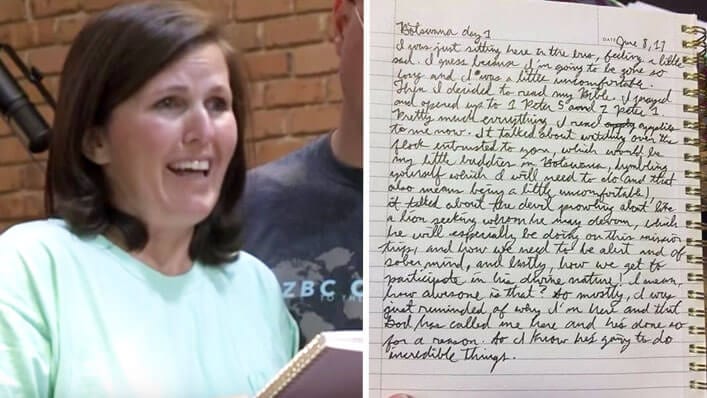 ZBC C
TO THE
Botswana day 1
DATE June 8, 17
I was just sitting here in the bus, feeling a little
sad. I guess because I'm going to be gone so
long and I was a little uncomfortable.
Then I decided to read my Bible. I prayed
and opened up to 1 Peter 5 and 2 Peter 1.
Pretty much everything I read applies
to me now. It talked about watching over the
flock entrusted to you, which would be
my little buddies in Botswana, humbling
yourself which I will need to do (and that
also means being a little uncomfortable)
it talked about the devil prowling about like
a lion seeking whom he may devour, which
he will especially be doing on this mission
trip, and how we need to be alert and of
sober mind, and lastly, how we get to
participate in his divine nature! I mean,
how awesome is that? So mostly, I was
just reminded of why I'm here and that
God has called me here and he's done so
for a reason. So I know he's going to do
incredible things.